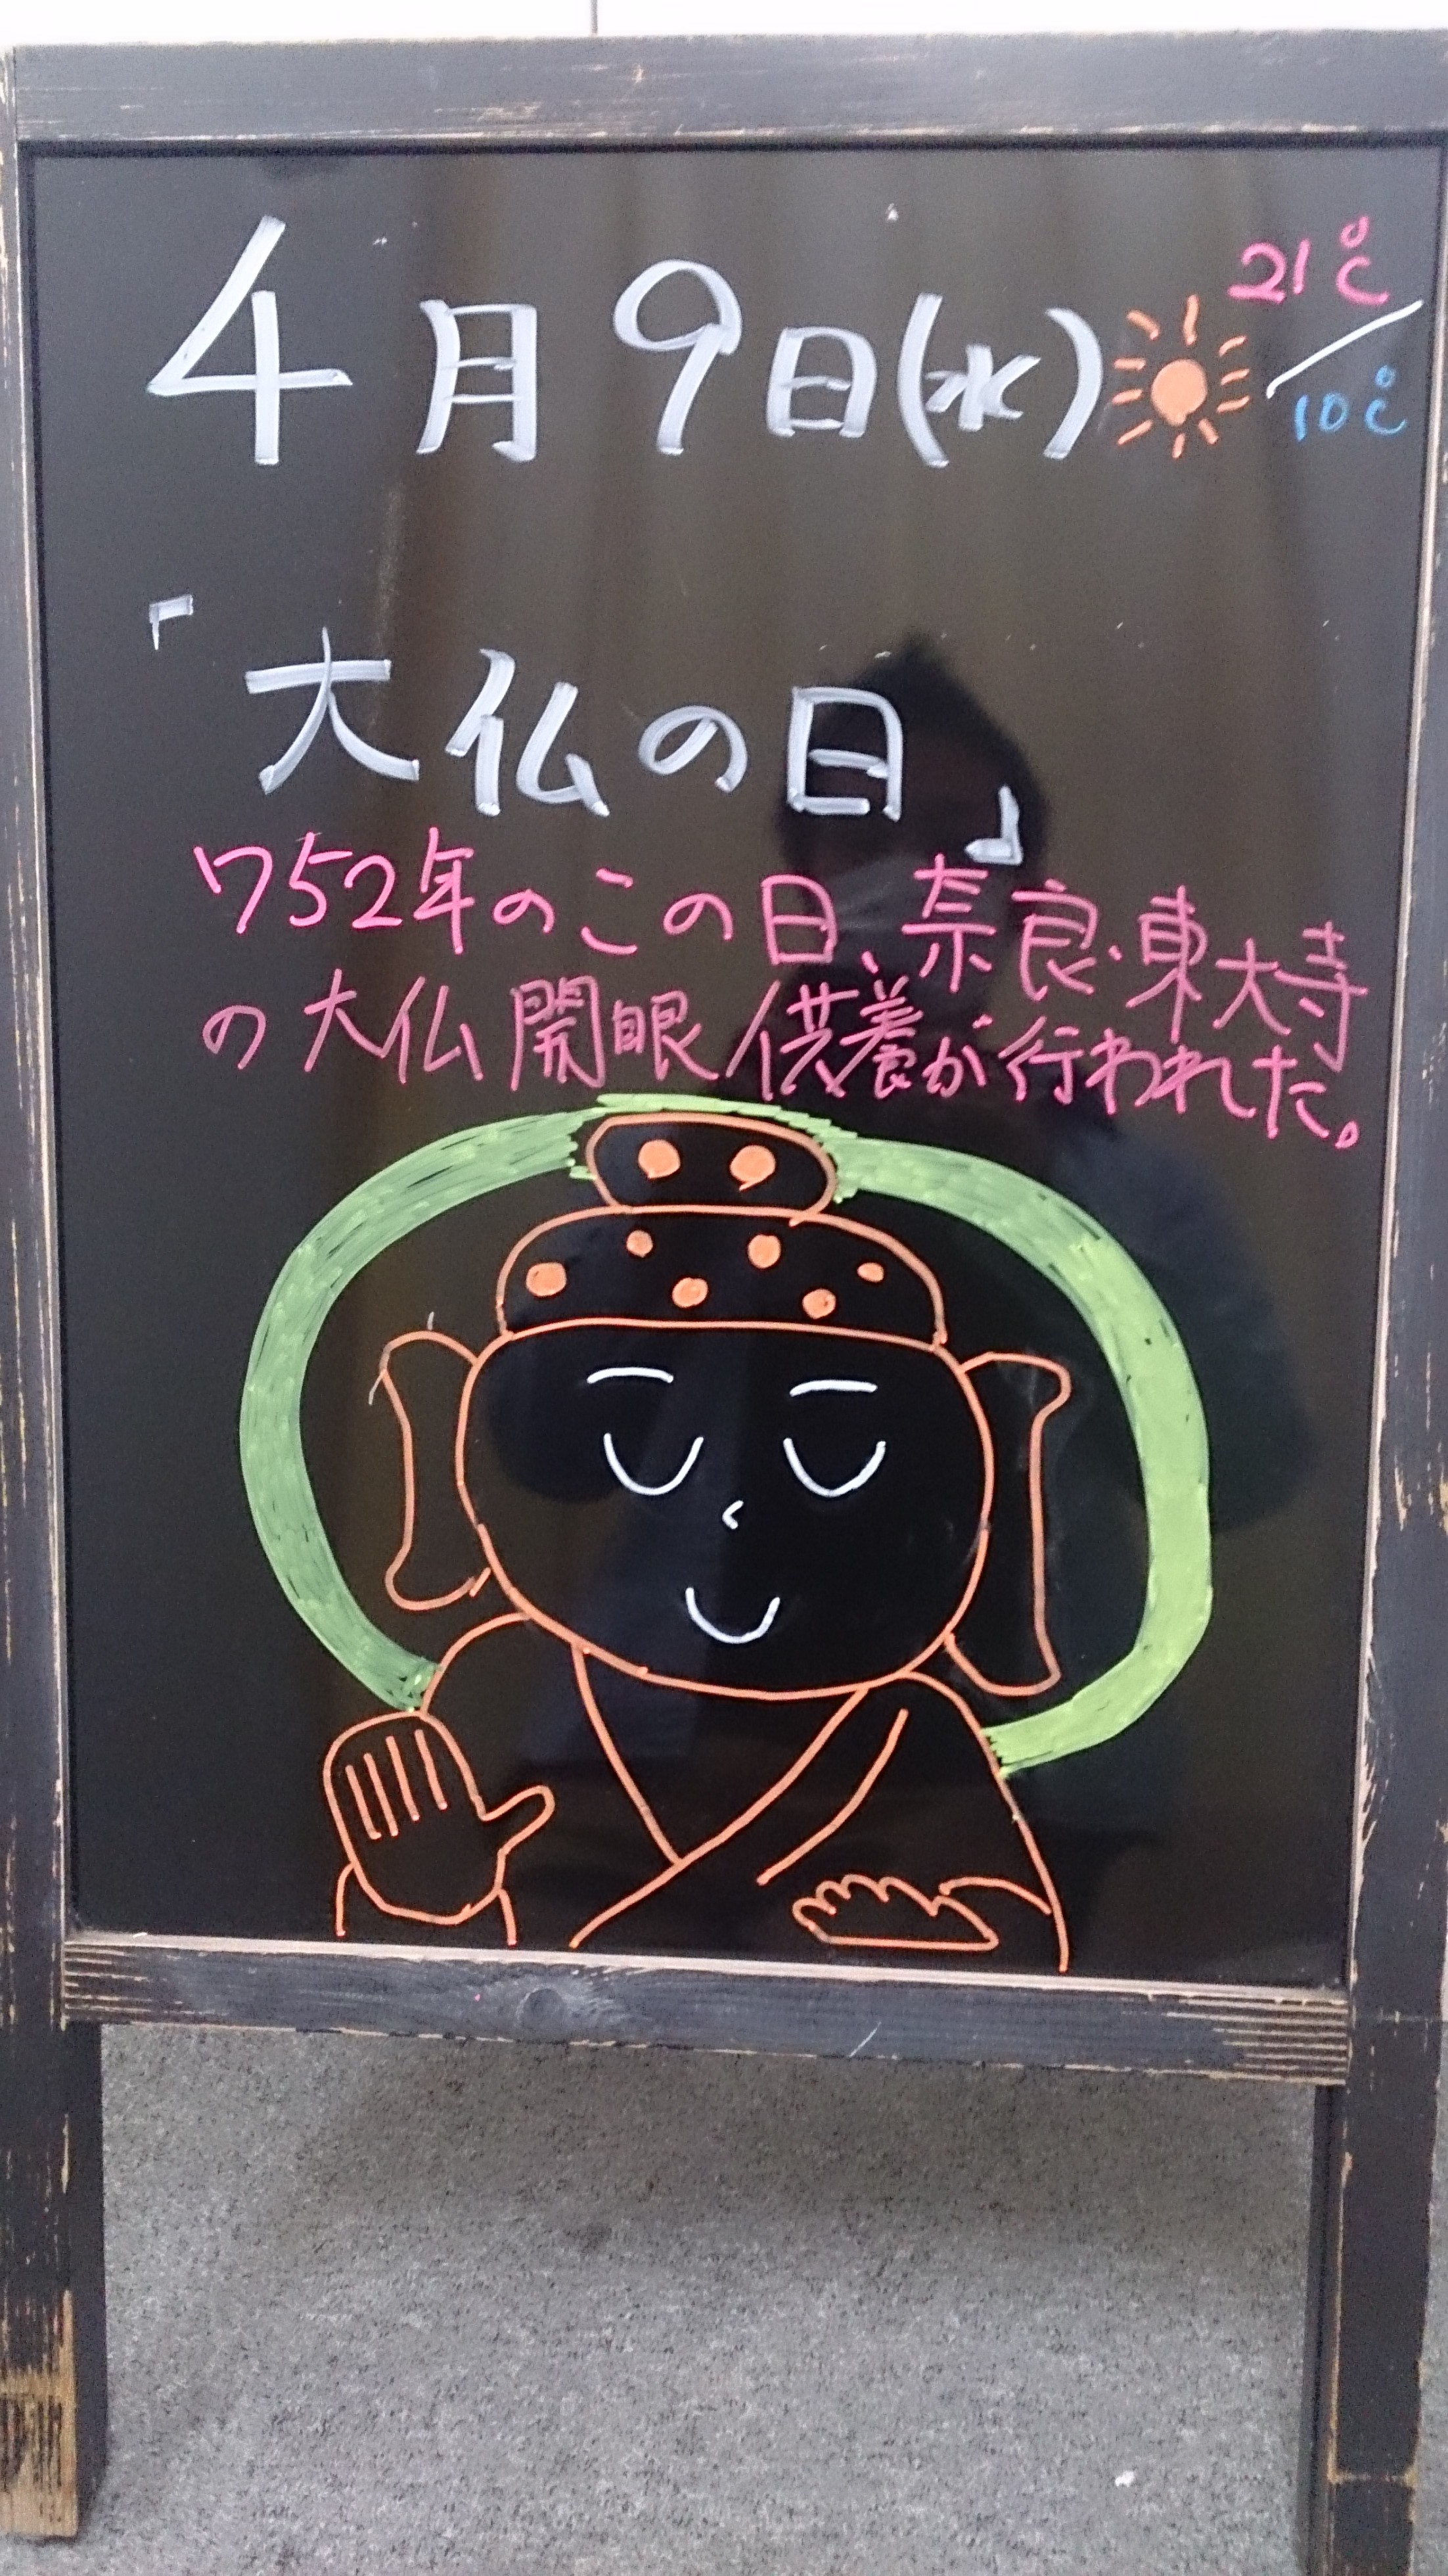 4月9日(水) 21℃/10℃
「大仏の日」
752年のこの日、奈良・東大寺
の大仏開眼供養が行われた。